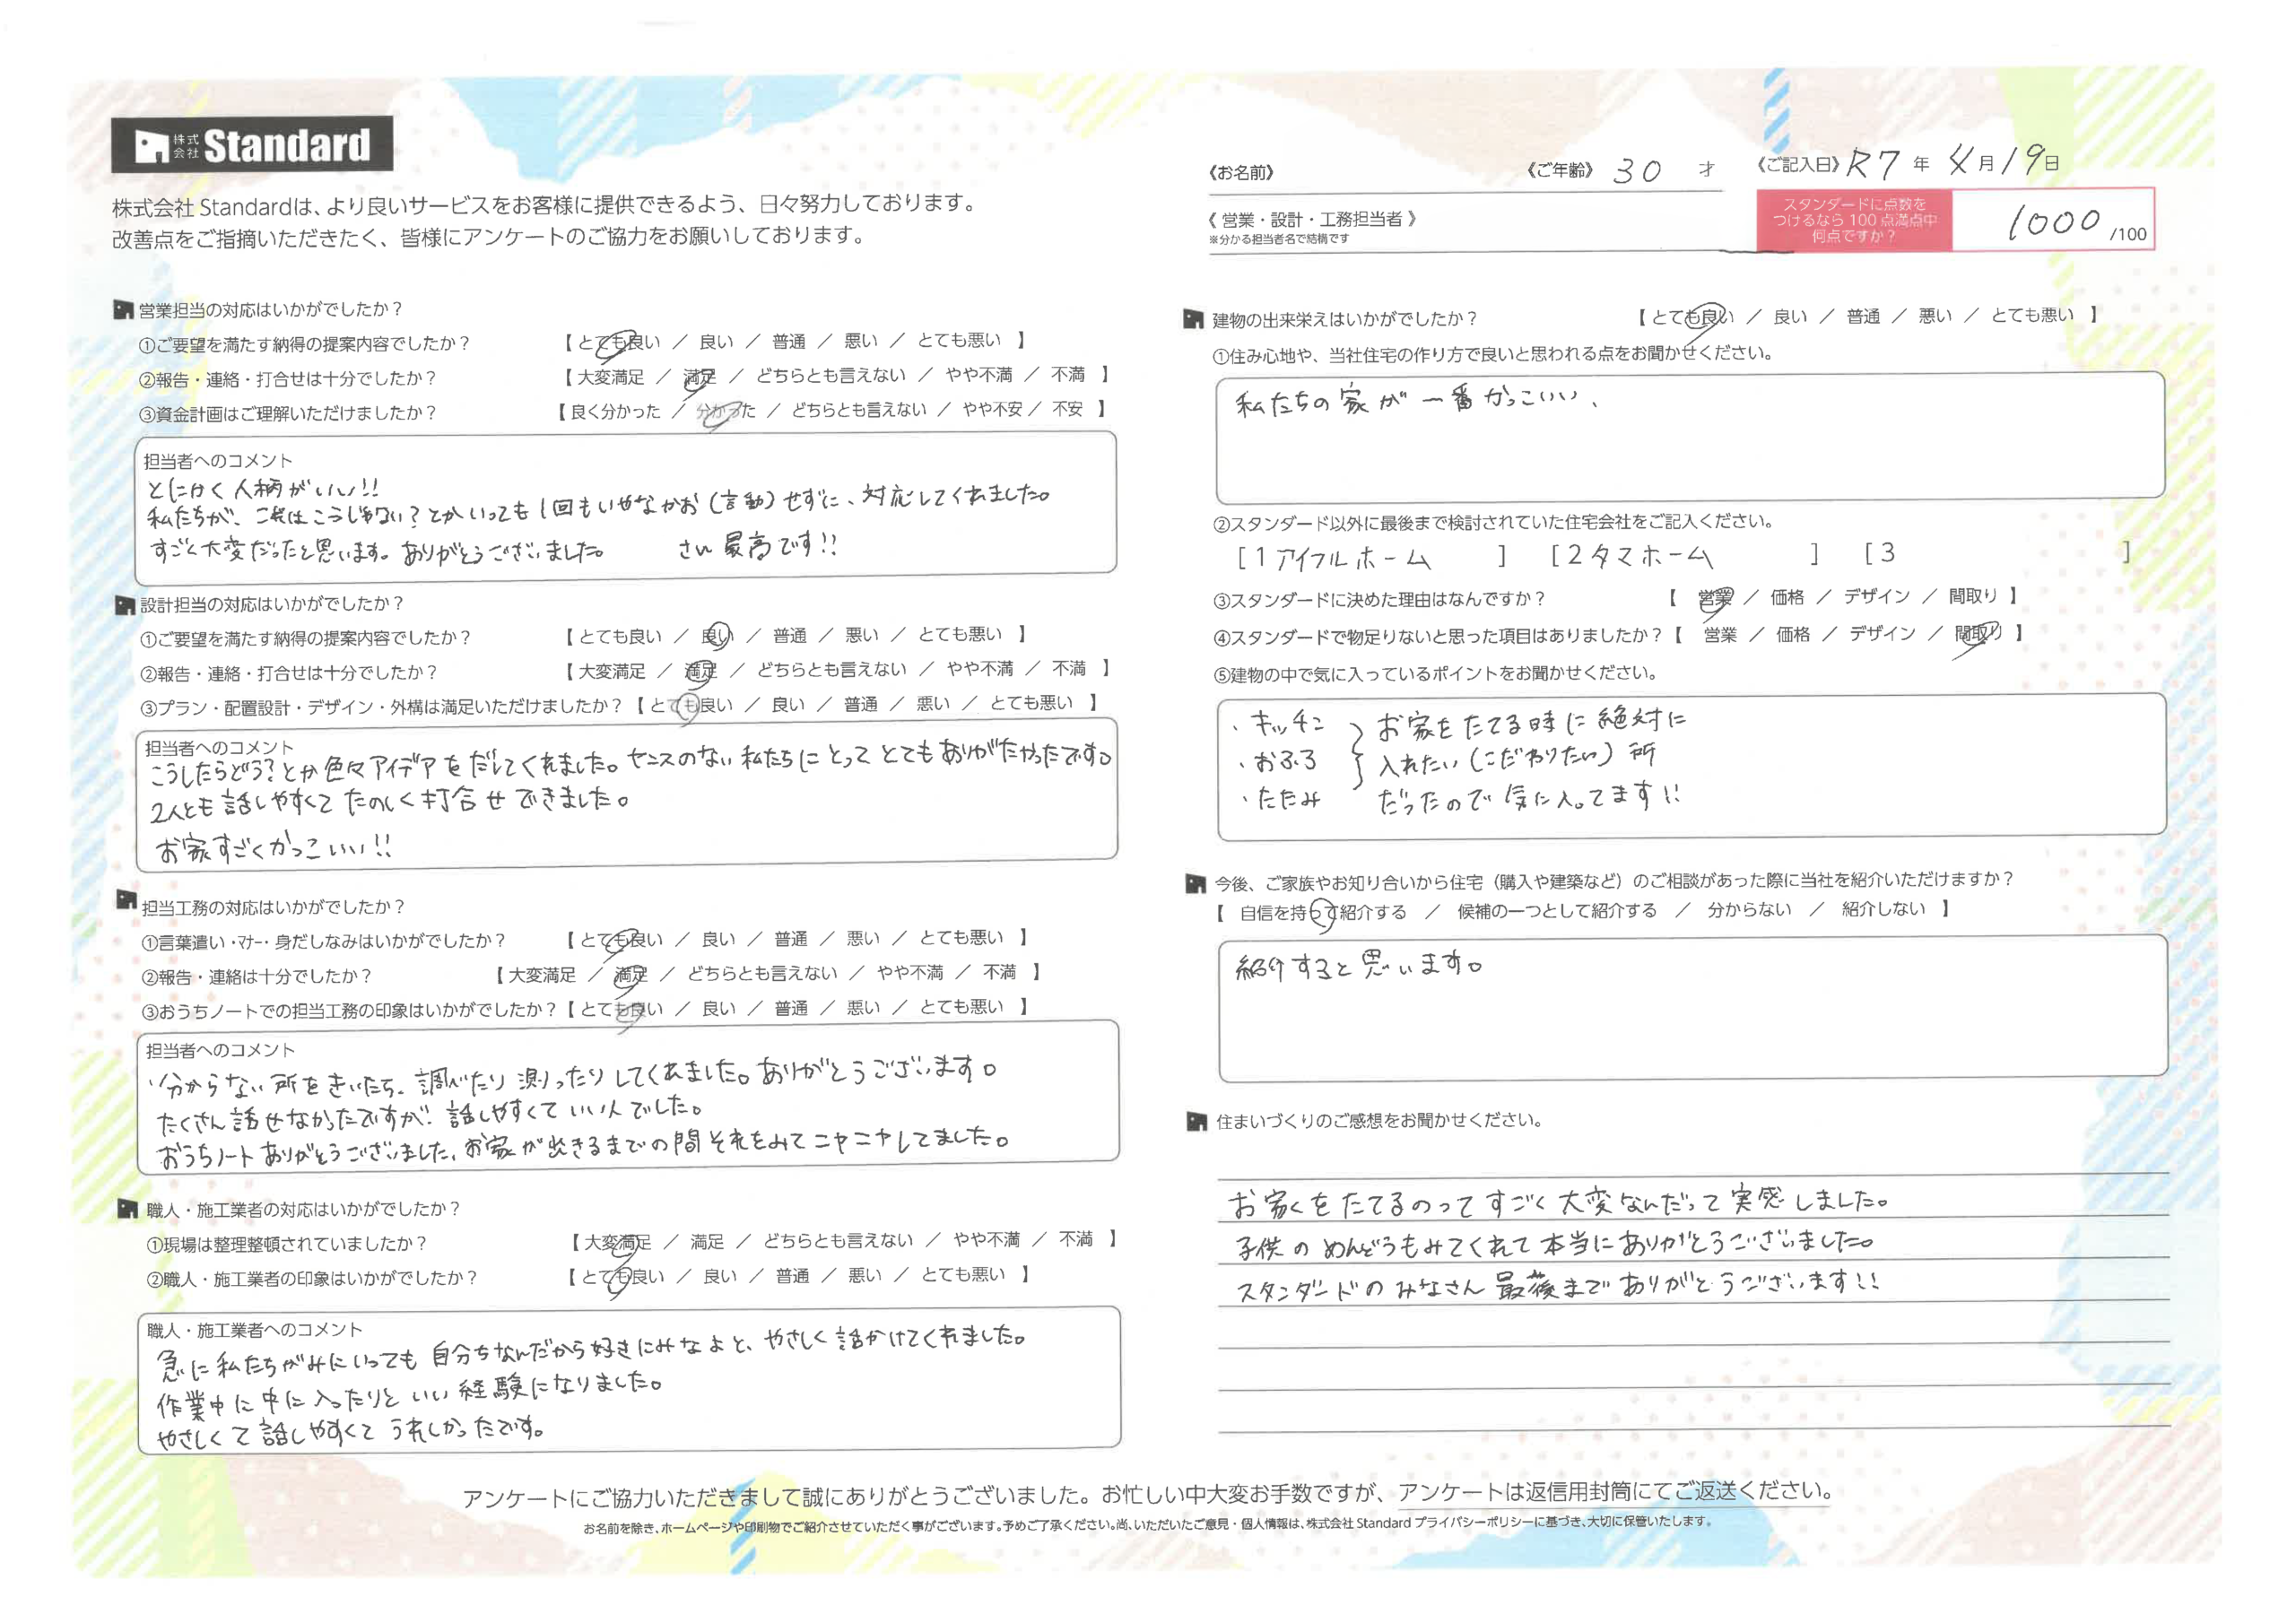 株式会社 Standard
株式会社 Standardは、より良いサービスをお客様に提供できるよう、日々努力しております。
改善点をご指摘いただきたく、皆様にアンケートのご協力をお願いしております。
《お名前》
《ご年齢》 30 才
《ご記入日》 R7 年 4月19日
《 営業・設計・工務担当者 》
※分かる担当者名で結構です
スタンダードに点数を
つけるなら 100 点満点中
何点ですか？
1000 /100
営業担当の対応はいかがでしたか？
①ご要望を満たす納得の提案内容でしたか？ 【 とても良い ／ 良い ／ 普通 ／ 悪い ／ とても悪い 】
②報告・連絡・打合せは十分でしたか？ 【 大変満足 ／ 満足 ／ どちらとも言えない ／ やや不満 ／ 不満 】
③資金計画はご理解いただけましたか？ 【 良く分かった ／ 分かった ／ どちらとも言えない ／ やや不安 ／ 不安 】
担当者へのコメント
とにかく人柄がいい!!
私たちが、これはこうじゃない？とかいっても1回もいやなかお（言動）せずに、対応してくれました。
すごく大変だったと思います。ありがとうございました。 さん最高です!!
設計担当の対応はいかがでしたか？
①ご要望を満たす納得の提案内容でしたか？ 【 とても良い ／ 良い ／ 普通 ／ 悪い ／ とても悪い 】
②報告・連絡・打合せは十分でしたか？ 【 大変満足 ／ 満足 ／ どちらとも言えない ／ やや不満 ／ 不満 】
③プラン・配置設計・デザイン・外構は満足いただけましたか？【 とても良い ／ 良い ／ 普通 ／ 悪い ／ とても悪い 】
担当者へのコメント
こうしたらどう？とか色々アイデアをだしてくれました。センスのない私たちにとってとてもありがたかったです。
2人とも話しやすくてたのしく打合せできました。
お家すごくかっこいい!!
担当工務の対応はいかがでしたか？
①言葉遣い・マナー・身だしなみはいかがでしたか？ 【 とても良い ／ 良い ／ 普通 ／ 悪い ／ とても悪い 】
②報告・連絡は十分でしたか？ 【 大変満足 ／ 満足 ／ どちらとも言えない ／ やや不満 ／ 不満 】
③おうちノートでの担当工務の印象はいかがでしたか？【 とても良い ／ 良い ／ 普通 ／ 悪い ／ とても悪い 】
担当者へのコメント
分からない所をきいたら、調べたり測ったりしてくれました。ありがとうございます。
たくさん話せなかったですが、話しやすくていい人でした。
おうちノートありがとうございました、お家が出きるまでの間それをみてニヤニヤしてました。
職人・施工業者の対応はいかがでしたか？
①現場は整理整頓されていましたか？ 【 大変満足 ／ 満足 ／ どちらとも言えない ／ やや不満 ／ 不満 】
②職人・施工業者の印象はいかがでしたか？ 【 とても良い ／ 良い ／ 普通 ／ 悪い ／ とても悪い 】
職人・施工業者へのコメント
急に私たちがみにいっても自分ちなんだから好きにみなよと、やさしく話かけてくれました。
作業中に中に入ったりといい経験になりました。
やさしくて話しやすくてうれしかったです。
建物の出来栄えはいかがでしたか？ 【 とても良い ／ 良い ／ 普通 ／ 悪い ／ とても悪い 】
①住み心地や、当社住宅の作り方で良いと思われる点をお聞かせください。
私たちの家が一番かっこいい、
②スタンダード以外に最後まで検討されていた住宅会社をご記入ください。
［1 アイフルホーム ］ ［2 タマホーム ］ ［3 ］
③スタンダードに決めた理由はなんですか？ 【 営業 ／ 価格 ／ デザイン ／ 間取り 】
④スタンダードで物足りないと思った項目はありましたか？【 営業 ／ 価格 ／ デザイン ／ 間取り 】
⑤建物の中で気に入っているポイントをお聞かせください。
・キッチン お家をたてる時に絶対に
・おふろ 入れたい（こだわりたい）所
・たたみ だったので気に入ってます!!
今後、ご家族やお知り合いから住宅（購入や建築など）のご相談があった際に当社を紹介いただけますか？
【 自信を持って紹介する ／ 候補の一つとして紹介する ／ 分からない ／ 紹介しない 】
紹介すると思います。
住まいづくりのご感想をお聞かせください。
お家をたてるのってすごく大変なんだって実感しました。
子供のめんどうもみてくれて本当にありがとうございました。
スタンダードのみなさん最後までありがとうございます!!
アンケートにご協力いただきまして誠にありがとうございました。お忙しい中大変お手数ですが、アンケートは返信用封筒にてご返送ください。
お名前を除き、ホームページや印刷物でご紹介させていただく事がございます。予めご了承ください。尚、いただいたご意見・個人情報は、株式会社 Standard プライバシーポリシーに基づき、大切に保管いたします。